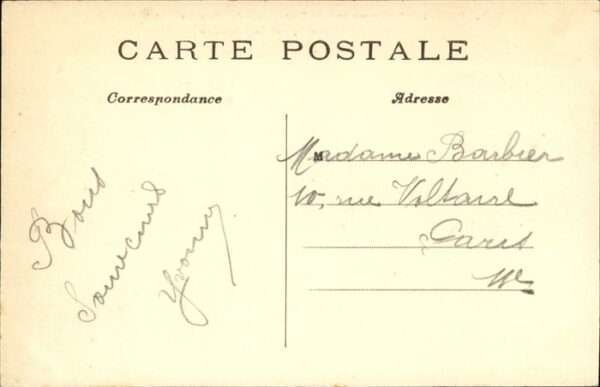 CARTE POSTALE
Correspondance
Adresse
Bons
Souvenirs
Yvonne
Madame Barbier
10, rue Voltaire
Paris